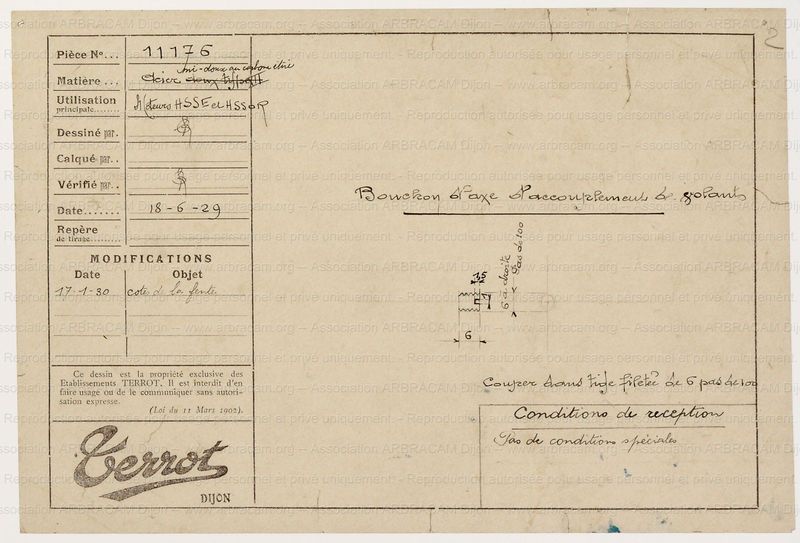 2
Pièce Nº... 11176
mi-doux au carbone étiré
Matière... Acier doux
Utilisation
principale........ Moteurs HSSE et HSSOR
Dessiné par.
Calqué par..
Vérifié par..
Date....... 18-6-29
Repère
de tirage..........
MODIFICATIONS
Date Objet
17-1-30 cote de la fente
Ce dessin est la propriété exclusive des
Etablissements TERROT. Il est interdit d'en
faire usage ou de le communiquer sans autori-
sation expresse.
(Loi du 11 Mars 1902).
Terrot
DIJON
Bouchon d'axe d'accouplement de volants
7,5
6 à droite
Pas de 100
6
Couper dans tige filetée de 6 pas de 100
Conditions de reception
Pas de conditions spéciales
Association ARBRACAM Dijon – www.arbracam.org – Association ARBRACAM Dijon – www.arbracam.org
Reproduction autorisée pour usage personnel et privé uniquement.